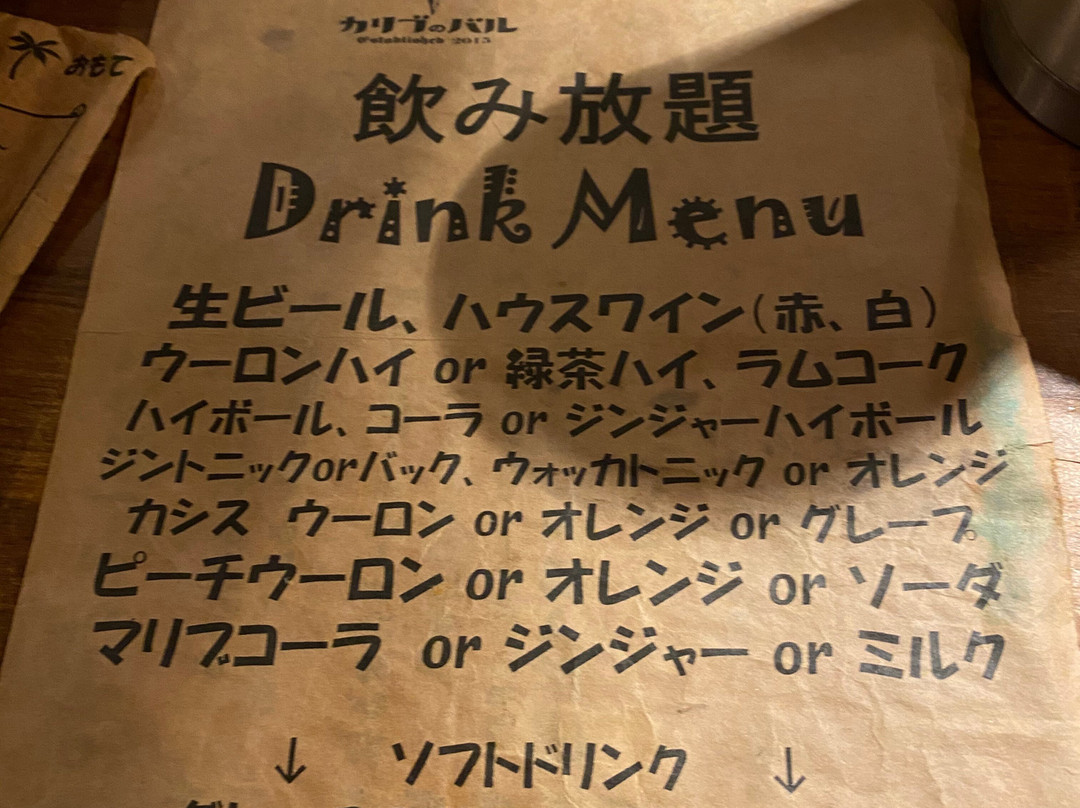 おもて
カリブのバル
Established 2015
飲み放題
Drink Menu
生ビール、ハウスワイン(赤、白)
ウーロンハイ or 緑茶ハイ、ラムコーク
ハイボール、コーラ or ジンジャーハイボール
ジントニックorバック、ウォッカトニック or オレンジ
カシス ウーロン or オレンジ or グレープ
ピーチウーロン or オレンジ or ソーダ
マリブコーラ or ジンジャー or ミルク
↓ ソフトドリンク ↓